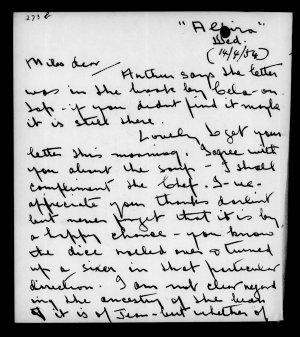 273 E
"Alpira"
Wed.
(14/4/54)
Miles dear
Anthus says the letter
was in the book by Cela - on
top - if you didnt find it maybe
it is still there.
Lovely to get your
letter this morning. I agree with
you about the soup - I shall
compliment the Chef. I - ue -
appreciate your thanks darling
but never forget that it is by
a happy chance - you know
the dice rolled over & turned
up a sixer in that particular
direction. I am not clear regard
ing the ancestry of the bear
it is of Jean - but whether of